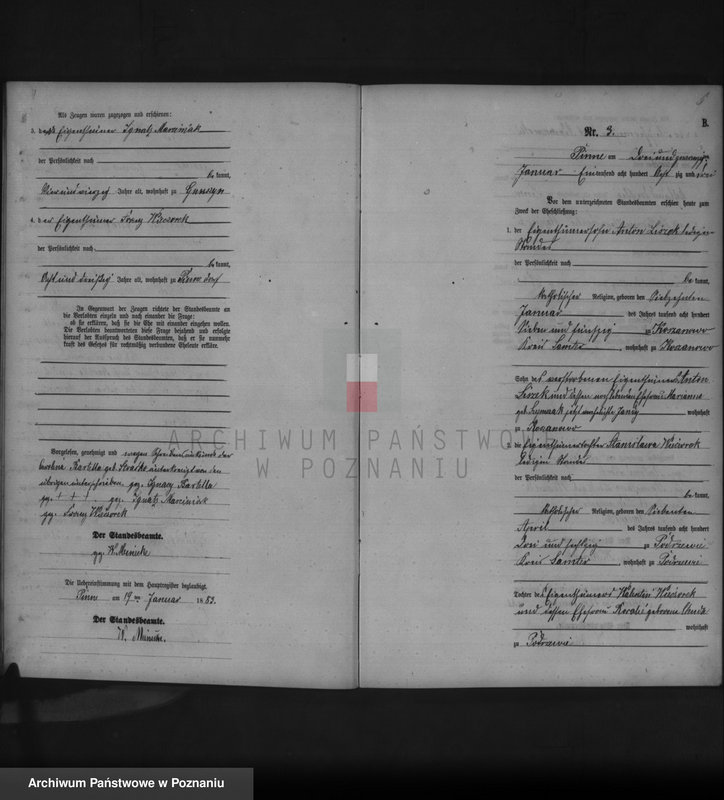 Als Zeugen waren zugezogen und erschienen:
3. der Eigenthümer Ignatz Marciniak
der Persönlichkeit nach
be kannt,
vierundvierzig Jahre alt, wohnhaft zu
4. der Eigenthümer
der Persönlichkeit nach
be kannt,
Acht und dreißig Jahre alt, wohnhaft zu Pinne Dorf
In Gegenwart der Zeugen richtete der Standesbeamte an
die Verlobten einzeln und nach einander die Frage:
ob sie erklären, daß sie die Ehe mit einander eingehen wollen.
Die Verlobten beantworteten diese Frage bejahend und erfolgte
hierauf der Ausspruch des Standesbeamten, daß er sie nunmehr
kraft des Gesetzes für rechtmäßig verbundene Eheleute erkläre.
Vorgelesen, genehmigt und wegen Schreibens unkunde der
geb. unterkreuzt von den
übrigen unterschrieben. gez. Ignacy
gez. + + + gez. Ignatz Marciniak
gez.
Der Standesbeamte.
gez. W.
Die Uebereinstimmung mit dem Hauptregister beglaubigt.
Pinne am 19ten Januar 1883.
Der Standesbeamte.
W.
B.
Nr. 3.
Pinne am Drei und zwanzigsten
Januar Eintausend acht hundert Acht zig und drei
Vor dem unterzeichneten Standesbeamten erschien heute zum
Zweck der Eheschließung:
1. der Eigenthümersohn Anton ledigen
Standes
der Persönlichkeit nach
be kannt,
katholischer Religion, geboren den Siebzehnten
Januar des Jahres tausend acht hundert
Sieben und fünfzig zu
Kreis Samter, wohnhaft zu
Sohn des verstorbenen Eigenthümers Anton
und dessen Ehefrau Marianna
geb. jetzt wohnhaft
zu
2. die Eigenthümertochter Stanislawa
ledigen Standes
der Persönlichkeit nach
be kannt,
katholischer Religion, geboren den Siebenten
April des Jahres tausend acht hundert
Drei und sechzig zu Podrzewie
Kreis Samter, wohnhaft zu Podrzewie
Tochter des Eigenthümers Valentin
und dessen Ehefrau Rosalie geborene
wohnhaft
zu Podrzewie
ARCHIWUM PAŃSTWO
W POZNANIU
Archiwum Państwowe w Poznaniu